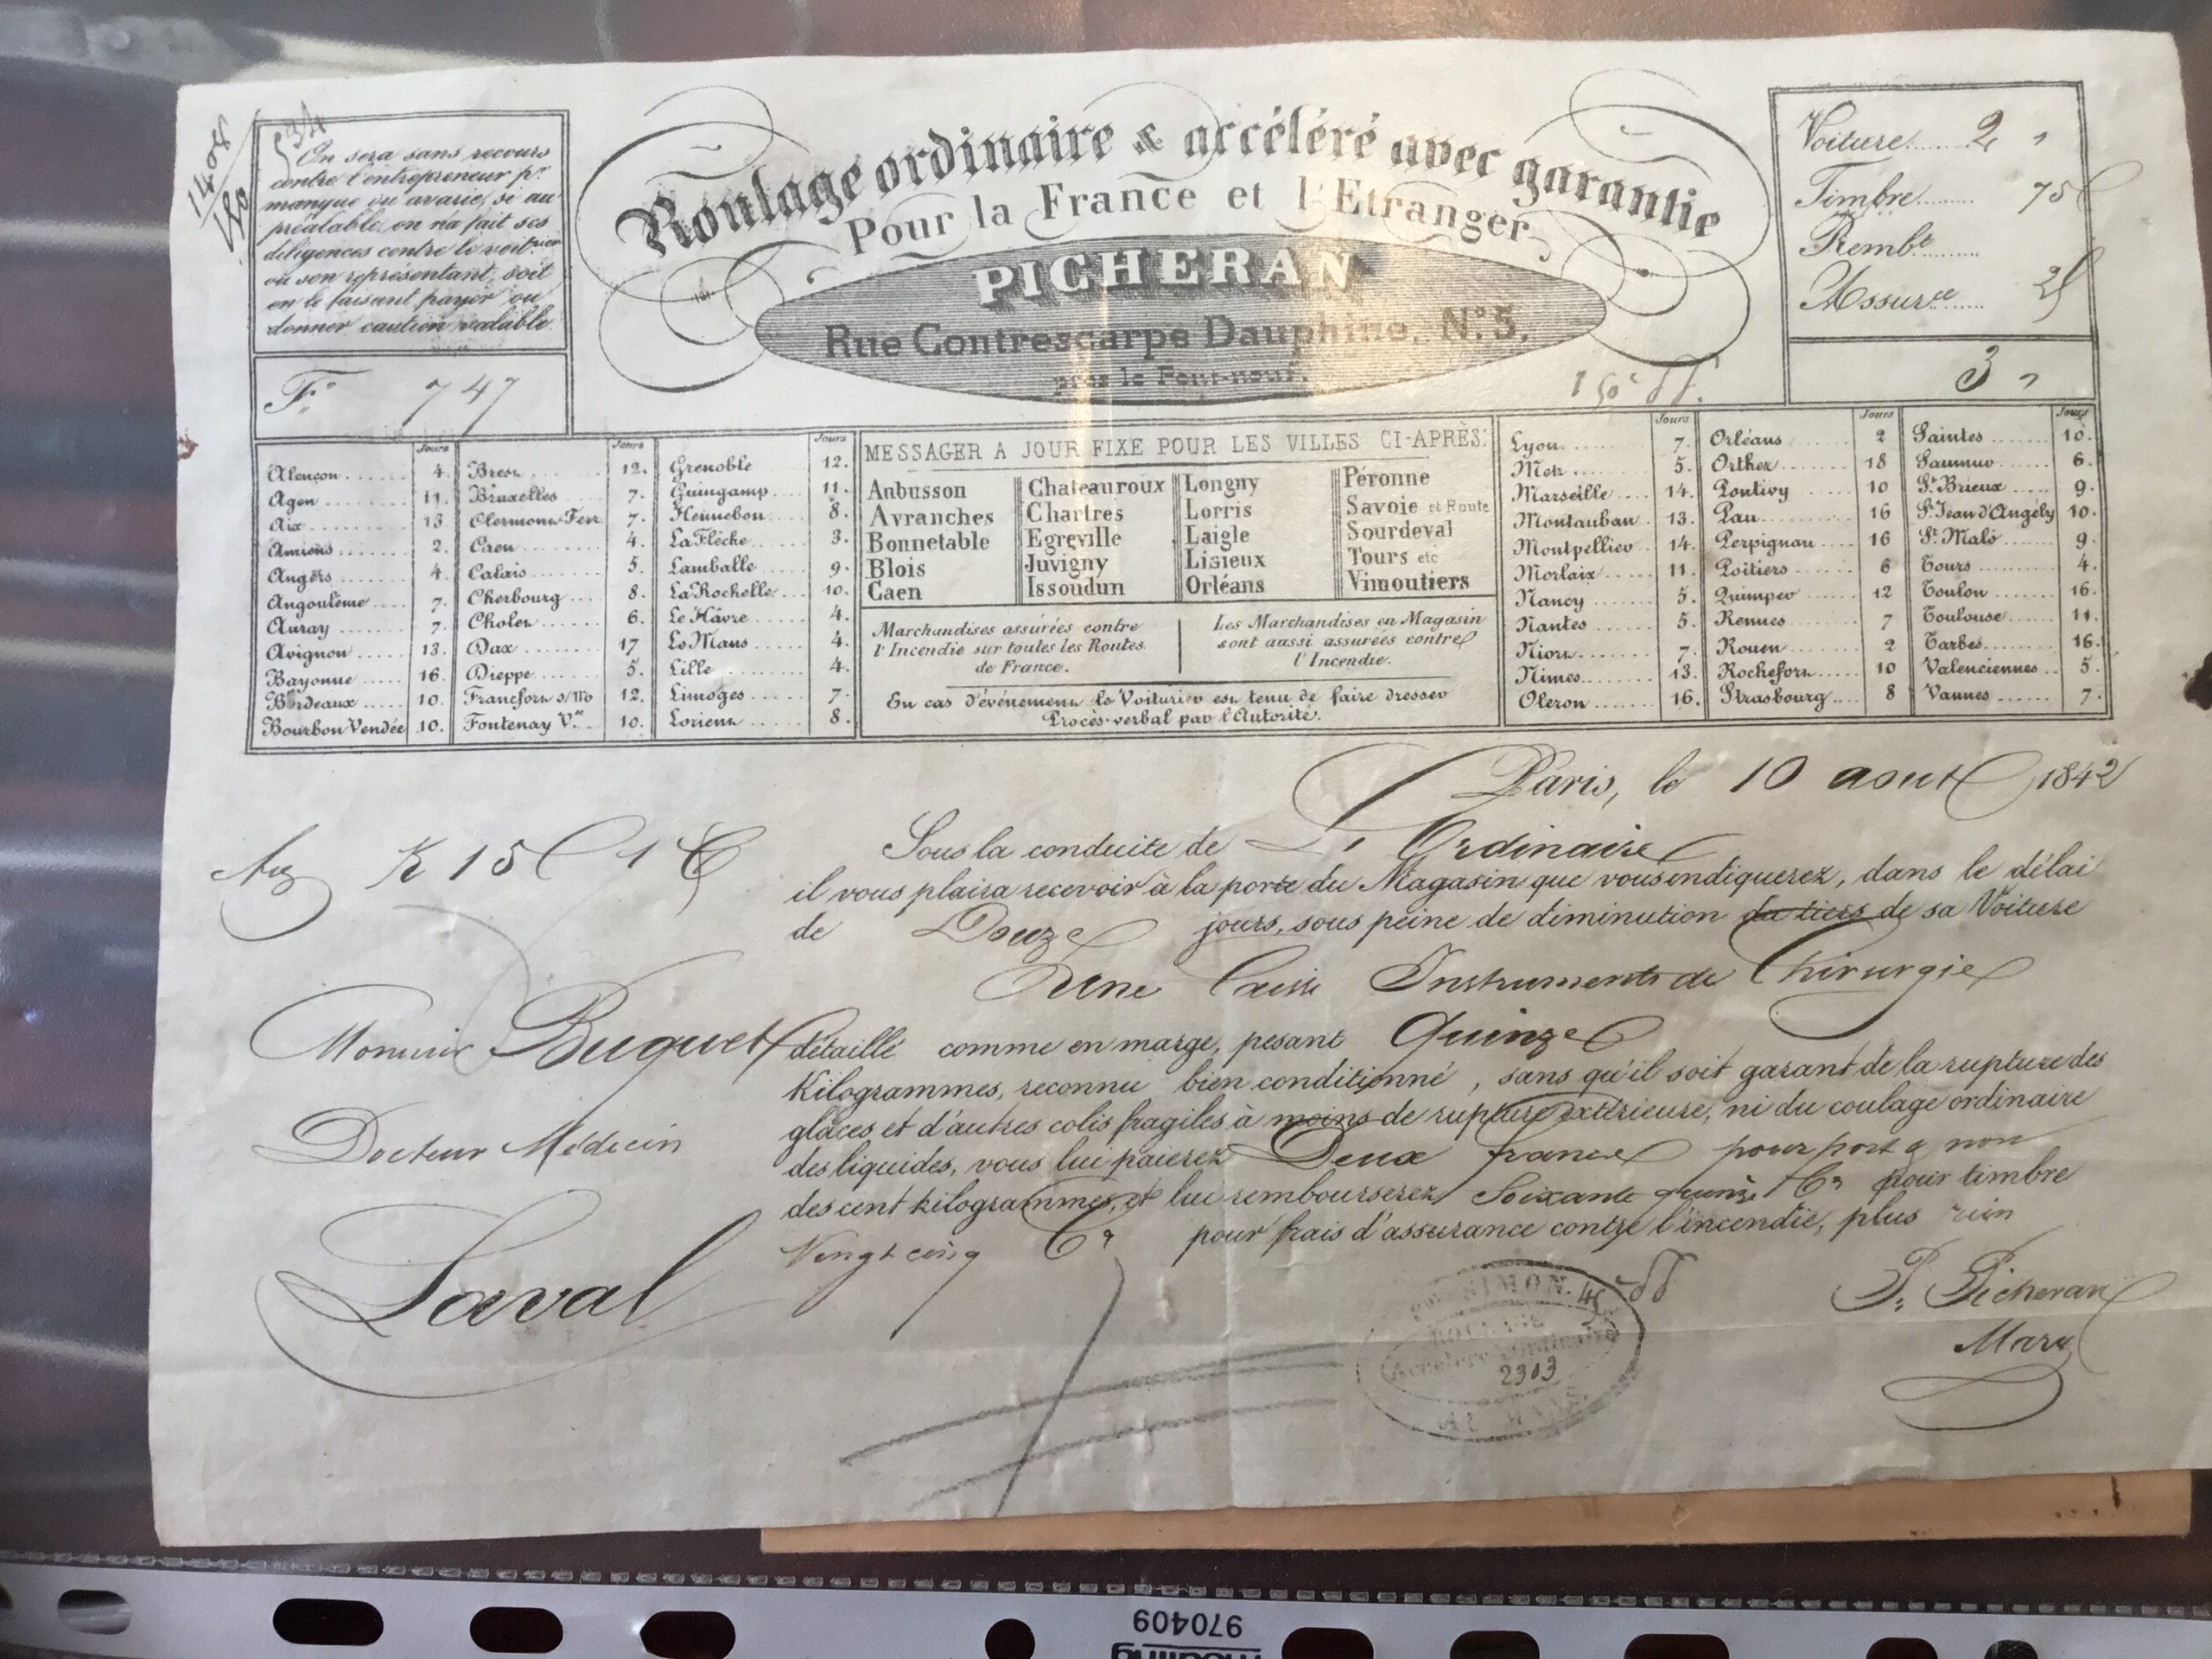 1408
On sera sans recours
contre l'entrepreneur pr.
manque ou avarie, si au
préalable on n'a fait ses
diligences contre le voit.rier
ou son représentant, soit
en le faisant payer ou
donner caution valable
F.° 747
Roulage ordinaire & accéléré avec garantie
Pour la France et l'Etranger
PICHERAN
Rue Contrescarpe Dauphine, N.° 5,
près le Pont-neuf.
Voiture 2 "
Timbre 75
Remb.t
Assur.ce 25
3 "
Jours
Alençon 4.
Agen 11.
Aix 13
Amiens 2.
Angers 4.
Angoulême 7.
Auray 7.
Avignon 13.
Bayonne 16.
Bordeaux 10.
Bourbon Vendée 10.
Jours
Brest 12.
Bruxelles 7.
Clermont Ferr. 7.
Caen 4.
Calais 5.
Cherbourg 8.
Cholet 6.
Dax 17
Dieppe 5.
Francfort s/M 12.
Fontenay V. 10.
Jours
Grenoble 12.
Guingamp 11.
Hennebon 8.
La Flèche 3.
Lamballe 9.
La Rochelle 10.
Le Hâvre 4.
Le Mans 4.
Lille 4.
Limoges 7.
Lorient 8.
MESSAGER A JOUR FIXE POUR LES VILLES CI-APRÈS:
Aubusson
Avranches
Bonnetable
Blois
Caen
Chateauroux
Chartres
Egreville
Juvigny
Issoudun
Longny
Lorris
Laigle
Lisieux
Orléans
Péronne
Savoie et Route
Sourdeval
Tours etc
Vimoutiers
Marchandises assurées contre
l'Incendie sur toutes les Routes
de France.
Les Marchandises en Magasin
sont aussi assurées contre
l'Incendie.
En cas d'événement le Voiturier est tenu de faire dresser
Procès-verbal par l'Autorité.
Jours
Lyon 7.
Metz 5.
Marseille 14.
Montauban 13.
Montpellier 14.
Morlaix 11.
Nancy 5.
Nantes 5.
Niort 7.
Nimes 13.
Oleron 16.
Jours
Orléans 2
Orthez 18
Pontivy 10
Pau 16
Perpignan 16
Poitiers 6
Quimper 12
Rennes 7
Rouen 2
Rochefort 10
Strasbourg 8
Jours
Saintes 10.
Saumur 6.
St. Brieux 9.
St. Jean d'Angély 10.
St. Malo 9.
Tours 4.
Toulon 16.
Toulouse 11.
Tarbes 16.
Valenciennes 5.
Vannes 7.
Paris, le 10 aout 1842
K 15
Sous la conduite de L' Ordinaire
il vous plaira recevoir à la porte du Magasin que vous indiquerez, dans le délai
de Douze jours, sous peine de diminution du tiers de sa Voiture
Une Caisse Instruments de Chirurgie
Monsieur Buquet
détaillé comme en marge, pesant Quinze
Kilogrammes, reconnu bien conditionné, sans qu'il soit garant de la rupture des
glaces et d'autres colis fragiles à moins de rupture extérieure, ni du coulage ordinaire
Docteur Médecin
des liquides, vous lui paierez Deux francs pour port & non
des cent kilogrammes, et lui rembourserez Soixante quinze Cs pour timbre
Vingt cinq Cs pour frais d'assurance contre l'incendie, plus rien
Laval
P. Picheran
Marx
2313
970409